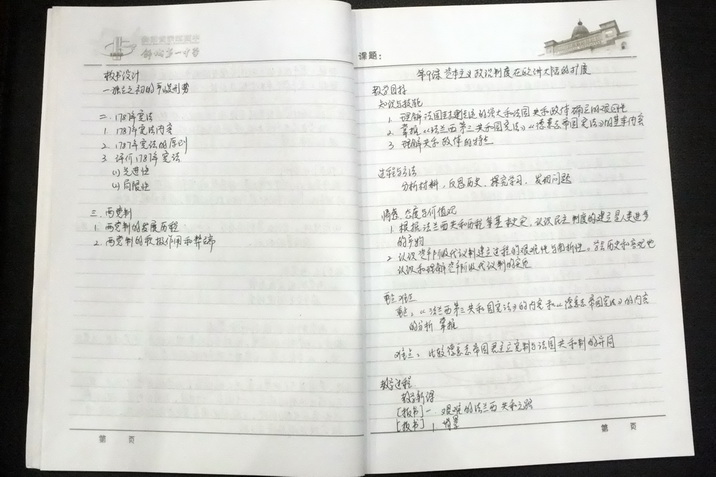 板书设计
一 独立之初的严峻形势
二 1787年宪法
1. 1787年宪法内容
2. 1787年宪法的原则
3. 评价1787年宪法
(1) 先进性
(2) 局限性
三、两党制
1. 两党制的发展历程
2. 两党制的积极作用和弊端
第 页
课题:
第9课 资本主义政治制度在欧洲大陆的扩展
教学目标
知识与技能
1. 理解法国封建的强大和法国共和政体确立的艰巨性
2. 掌握《法兰西第三共和国宪法》《德意志帝国宪法》的基本内容
3. 理解共和政体的特点
过程与方法
分析材料,反思历史,探究学习,发现问题
情感态度与价值观
1. 根据法兰西共和历程等重大史实,认识民主制度的建立是人类进步的
2. 认识资产阶级代议制建立过程的艰难性与曲折性,
认识和理解资产阶级代议制的
重点难点
重点:《法兰西第三共和国宪法》的内容和《德意志帝国宪法》的内容
的分析 掌握
难点:比较德意志帝国君主立宪制与法国共和制的异同
教学过程
教学新课
[板书] 一 艰难的法兰西共和之路
[板书] 1 背景
第 页